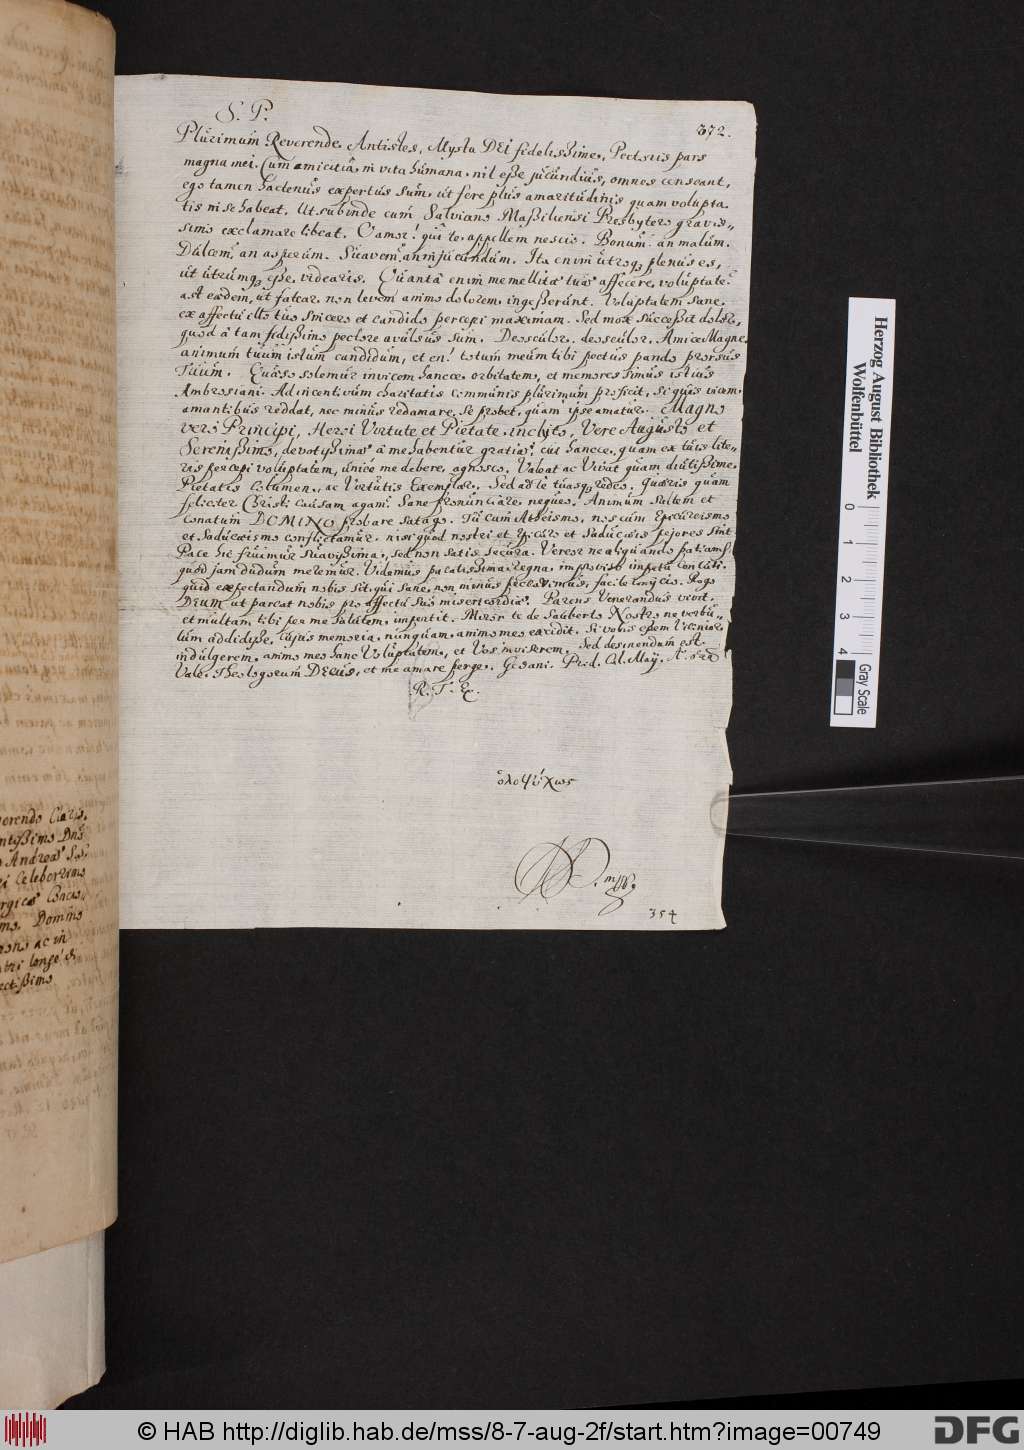 372.
S. P.
Plurimum Reverende Antistes, Mysta DEI fidelissime, Pectoris pars
magna mei. Cum amicitia in vita humana nil esse jucundius, omnes censeant,
ego tamen hactenus expertus sum, ut fere plus amaritudinis quam volupta-
tis in se habeat. Ut subinde cum Salviano Massiliensi Presbytero gravis-
simo exclamare libeat. O amor! qui te appellem nescio. Bonum an malum.
Dulcem, an asperum. Suavem, an injucundum. Ita enim utroq; plenus es,
ut utrumq; esse videaris. Quanta enim me mellitae tuae affecere voluptate
ast eaedem, ut fatear, non levem animo dolorem ingesserunt. Voluptatem sane
ex affectu illo tuo sincero et candido percepi maximam. Sed mox successit dolor,
quod à tam fidissimo pectore avulsus sum. Deosculor, deosculor, Amice Magne
animum tuum istum candidum, et en! totum meum tibi pectus pando prorsus
Tuum. Quaeso solemur invicem hancce orbitatem, et memores simus istius
Ambrosiani. Ad incentivum charitatis communis plurimum proficit, si quis vicem
amantibus reddat, nec minus redamare se probet, quam ipse amatur. Magno
vero Principi, Heroi Virtute et Pietate inclyto, Vere Augusto et
Serenissimo, devotissimae à me habentur gratiae, cui hancce, quam ex tuis lite-
ris percepi voluptatem, unice me debere, agnosco. Valeat ac Vivat quam diutissime
Pietatis Columen, ac Virtutis Exemplar. Sed ad te tuasq; redeo. Quaeris quam
feliciter Christi causam agam. Sane pronunciare nequeo. Animum saltem et
conatum DOMINO probare satago. Tu cum Atheismo, nos cum Epicureismo
et Saducaeismo conflictamur, nisi quod nostri et Epicuro et Saducaeis pejores sint
Pace hic fruimur suavissima, sed non satis secura. Vereor ne aliquando patiamur
quod jam dudum meremur. Videmus pacatissima regna improviso impetu concuti.
quid expectandum nobis sit, qui sane non minus peccavimus, facile conjicio. Rogo
DEUM ut parcat nobis pro affectu suae misericordiae. Parens Venerandus vivit
et multam tibi per me salutem impertit. Miror te de Sauberto Nostro ne verbu-
lum addidisse, cujus memoria nunquam animo meo excidit. Si vobis essem Vicinior
indulgerem animo meo hanc Voluptatem, et Vos inviserem. Sed desinendum est.
Vale, Theologorum DECUS, et me amare perge. Gedani. Prid. Cal. Maij.
R. T. Ex.
ὁλοψύχως
mpp.
354
erendo Claris.
ntissimo Dno
Andreae
ei Celeberrimo
rgico Concio
mo. Domino
rono ac in
longe
ectissimo
Herzog August Bibliothek
Wolfenbüttel
0 1 2 3 4
Gray Scale
© HAB http://diglib.hab.de/mss/8-7-aug-2f/start.htm?image=00749
DFG